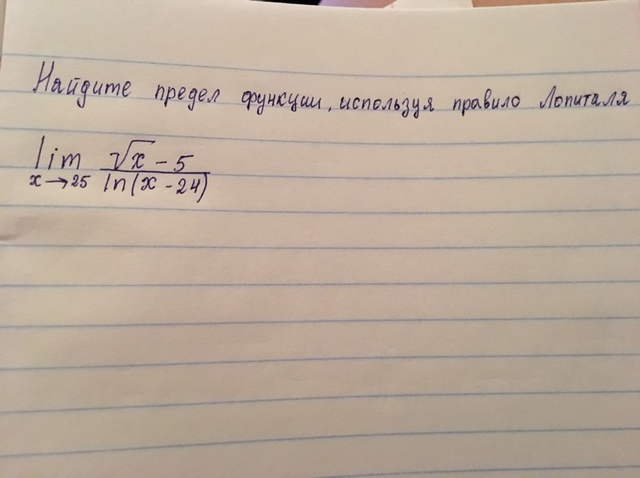 Найдите предел функции, используя правило Лопиталя
lim x→25 (√x - 5) / (ln(x - 24))